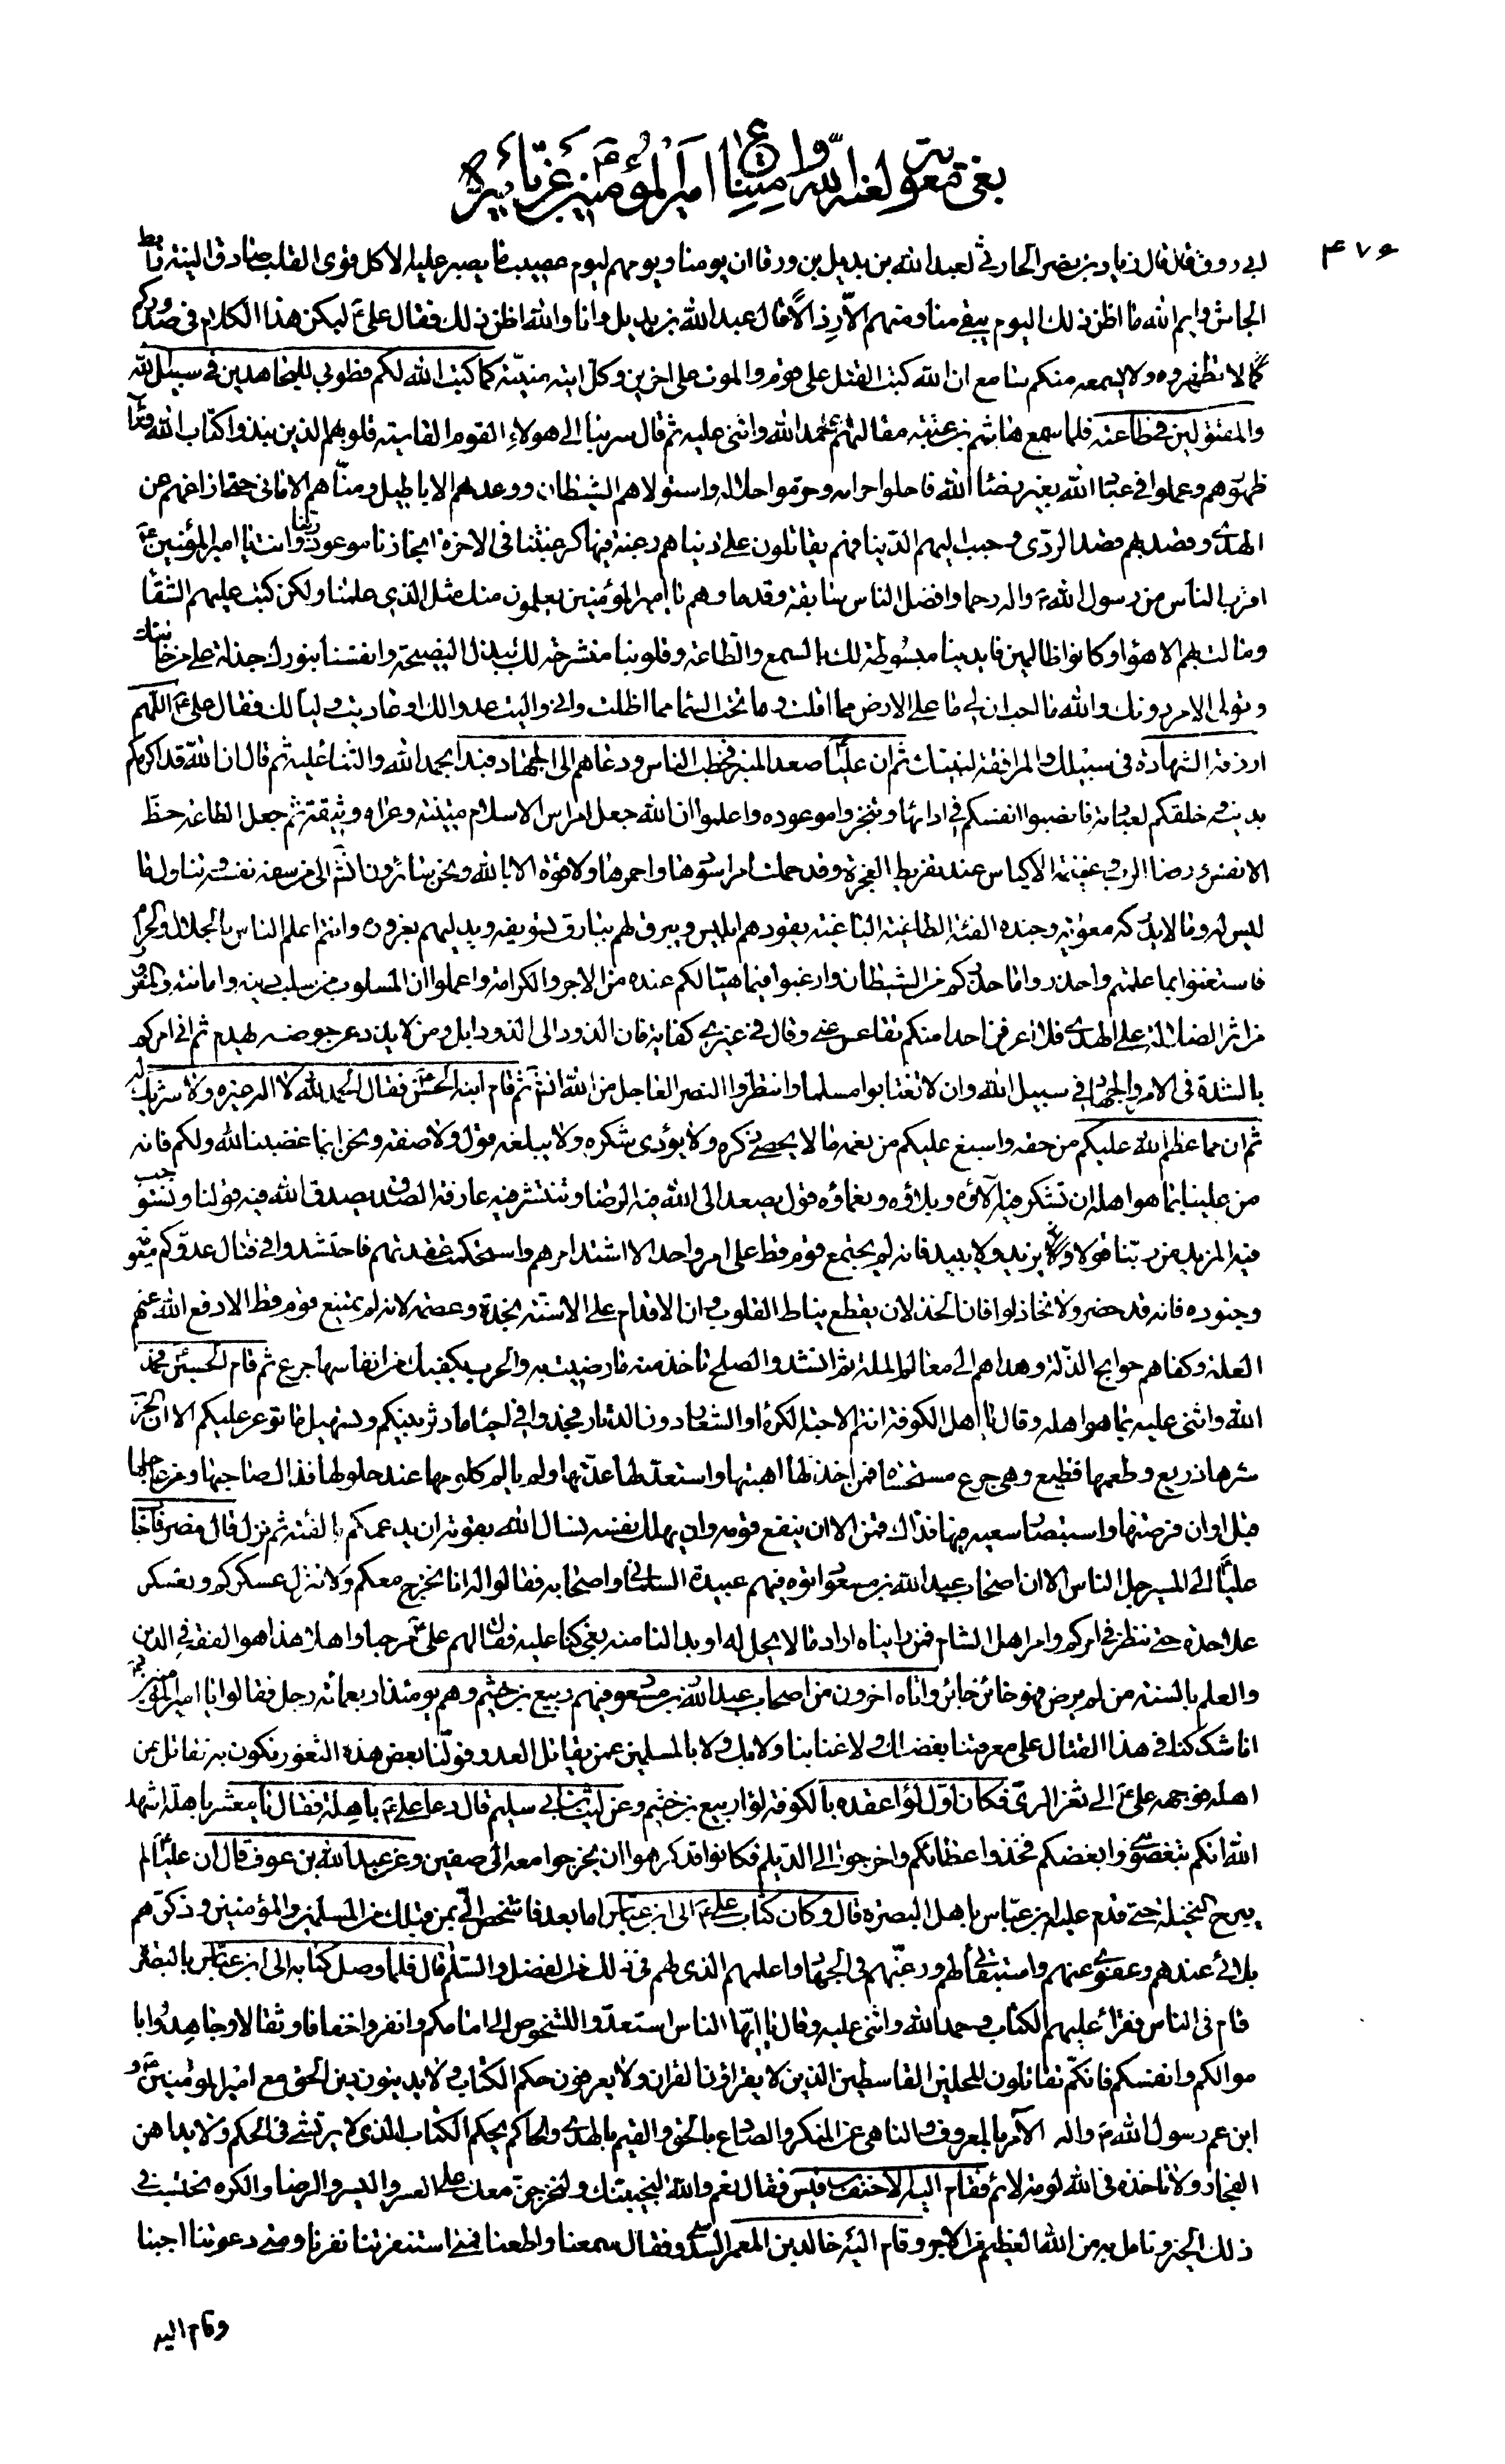 بغى معوية لعنه الله وامتناع امير المؤمنين ع عن تأميره
۴۷۶
ابى روق قال قال زياد بن نضر الحارثى لعبد الله بن بديل بن ورقا ان يومنا ويومهم ليوم عصيب ما يصبر عليه الا كل قوى القلب صادق النية رابط
الجاش وايم الله ما اظن ذلك اليوم يبقى منا ومنهم الا الرذال قال عبد الله بن بديل وانا والله اظن ذلك فقال على ع ليكن هذا الكلام فى صدوركم
كما لا تظهروه ولا يسمعه منكم سامع ان الله كتب القتل على قوم والموت على اخرين وكل ايته منيته كما كتب الله لكم فطوبى للمجاهدين فى سبيل الله
والمقتولين فى طاعته فلما سمع هاشم بن عتبة مقالتهم حمد الله واثنى عليه ثم قال سر بنا الى هولاء القوم القاسية قلوبهم الذين نبذوا كتاب الله وراء
ظهورهم وعملوا فى عباد الله بغير رضاء الله فاحلوا حرامه وحرموا حلاله واستولاهم الشيطان ووعدهم الاباطيل ومناهم الامانى حتى ازاغهم عن
الهدى وقصد بهم قصد الردى وحبب اليهم الدنيا فهم يقاتلون على دنياهم رغبة فيها كرغبتنا فى الاخرة انجاز نا موعود ربنا وانت يا امير المؤمنين ع
اقرب الناس من رسول الله ص واله رحما وافضل الناس سابقة وقدما وهم يا امير المؤمنين يعلمون منك مثل الذى علمنا ولكن كتب عليهم الشقاء
ومالت بهم الاهواء وكانوا ظالمين فايدينا مبسوطة لك بالسمع والطاعة وقلوبنا منشرحة لك ببذل النصيحة وانفسنا بنورك جذلة على من خالفك
وتولى الامر دونك والله ما احب ان لى ما على الارض مما اقلت وما تحت السماء مما اظلت وانى واليت عدوا لك او عاديت وليا لك فقال على ع اللهم
ارزقه الشهادة فى سبيلك والمرافقة لنبيك ثم ان عليا ع صعد المنبر فخطب الناس ودعاهم الى الجهاد فبدا بحمد الله والثناء عليه ثم قال ان الله قد اكرمكم
بدينه وخلقكم لعبادته فانصبوا انفسكم فى ادائها وتنجزوا موعوده واعلموا ان الله جعل امراس الاسلام متينة وعراه وثيقة ثم جعل الطاعة حظ
الانفس ورضا الرب وغنيمة الاكياس عند تفريط العجزة وقد حملت امر اسودها واحمرها ولا قوة الا بالله ونحن سائرون انشاء الله الى من سفه نفسه وتناول ما
ليس له وما لا يدركه معوية وجنده الفئة الطاغية الباغية يقودهم ابليس ويبرق لهم ببارق تسويفه ويدليهم بغروره وانتم اعلم الناس بالحلال والحرام
فاستغنوا بما علمتم واحذروا ما حذركم من الشيطان وارغبوا فيما هيا لكم عنده من الاجر والكرامة واعلموا ان المسلوب من سلب دينه وامانته والمغرور
من اثر الضلالة على الهدى فلا اعرفن احدا منكم تقاعس عنى وقال فى غيرى كفاية فان الذود الى الذود ابل ومن لا يذد عن حوضه يهدم ثم انى امركم
بالشدة فى الامر والجهاد فى سبيل الله وان لا تغتابوا مسلما وانتظروا النصر العاجل من الله انشاء الله ثم قام ابنه الحسن ع فقال الحمد لله لا اله غيره ولا شريك له
ثم ان مما عظم الله عليكم من حقه واسبغ عليكم من نعمه ما لا يحصى ذكره ولا يؤدى شكره ولا يبلغه قول ولا صفة ونحن انما غضبنا لله ولكم فانه
من علينا بما هو اهله ان تشكر فيه الاؤه وبلاؤه ونعماؤه قول يصعد الى الله فيه الرضا وتنتشر فيه عارفة الصدق يصدق الله فيه قولنا ونستوجب
فيه المزيد من ربنا قولا يزيد ولا يبيد فانه لم يجتمع قوم قط على امر واحد الا اشتد امرهم واستحكمت عقدتهم فاحتشدوا فى قتال عدوكم معوية
وجنوده فانه قد حضر ولا تخاذلوا فان الخذلان يقطع نياط القلوب وان الاقدام على الاسنة نجدة وعصمة لانه لم يمتنع قوم قط الا دفع الله عنهم
العلة وكفاهم حوايج الذلة وهداهم الى معالم الملة ثم انشد والصلح تاخذ منه ما رضيت به والحرب يكفيك من انفاسها جرع ثم قام الحسين ع فحمد
الله واثنى عليه بما هو اهله وقال يا اهل الكوفة انتم الاحبة الكرماء والشعار دون الدثار فجدوا فى احياء ما دثر بينكم وتسهيل ما توعر عليكم الا ان الحرب
شرها ذريع وطعمها فظيع وهى جرع مستحساة فمن اخذ لها اهبتها واستعد لها عدتها ولم يالم كلومها عند حلولها فذاك صاحبها ومن عاجلها
قبل اوان فرصتها واستبصار سعيه فيها فذاك قمن الا ان ينفع قومه وان يهلك نفسه نسال الله بقوته ان يدعمكم بالفئة ثم نزل قال نصر فاجاب
عليا ع الى المسير جل الناس الا ان اصحاب عبد الله بن مسعود اتوه فيهم عبيدة السلمانى واصحابه فقالوا له انا نخرج معكم ولا ننزل عسكركم ونعسكر
على حدة حتى ننظر فى امركم وامر اهل الشام فمن رايناه اراد ما لا يحل له او بدا لنا منه بغى كنا عليه فقال لهم على ع مرحبا واهلا هذا هو الفقه فى الدين
والعلم بالسنة من لم يرض فهو خائن جائر واتاه اخرون من اصحاب عبد الله بن مسعود فيهم ربيع بن خثيم وهم يومئذ اربعمائة رجل فقالوا يا امير المؤمنين
انا شككنا فى هذا القتال على معرفتنا بفضلك ولا غناء بنا ولا بك ولا بالمسلمين عمن يقاتل العدو فولنا بعض هذه الثغور نكون به نقاتل عن
اهله فوجهه على ع الى ثغر الرى فكان اول لواء عقده بالكوفة لواء ربيع بن خثيم وعن ليث بن ابى سليم قال دعا على ع باهلة فقال يا معشر باهلة اشهد
الله انكم تبغضونى وابغضكم فخذوا عطائكم واخرجوا الى الديلم فكانوا قد كرهوا ان يخرجوا معه الى صفين وعن عبد الله بن عوف قال ان عليا ع لم
يبرح النخيلة حتى قدم عليه ابن عباس باهل البصرة قال وكان كتاب على ع الى ابن عباس اما بعد فاشخص الى بمن قبلك من المسلمين والمؤمنين وذكرهم
بلائى عندهم وعفوى عنهم واستبقائى لهم ورغبهم فى الجهاد واعلمهم الذى لهم فى ذلك من الفضل والسلم قال فلما وصل كتابه الى ابن عباس بالبصرة
قام فى الناس فقرا عليهم الكتاب وحمد الله واثنى عليه وقال يا ايها الناس استعدوا للشخوص الى امامكم وانفروا خفافا وثقالا وجاهدوا با
موالكم وانفسكم فانكم تقاتلون المحلين القاسطين الذين لا يقراون القران ولا يعرفون حكم الكتاب ولا يدينون دين الحق مع امير المؤمنين ع و
ابن عم رسول الله ص واله الآمر بالمعروف والناهى عن المنكر والصادع بالحق والقيم بالهدى والحاكم بحكم الكتاب الذى لا يرتشى فى الحكم ولا يداهن
الفجار ولا تاخذه فى الله لومة لائم فقام اليه الاحنف بن قيس فقال نعم والله لنجيبنك ولنخرجن معك على العسر واليسر والرضا والكره نحتسب فى
ذلك الخير ونامل به من الله العظيم من الاجر وقام اليه خالد بن المعمر السدوسى فقال سمعنا واطعنا فمتى استنفرتنا نفرنا ومتى دعوتنا اجبنا
وقام اليه